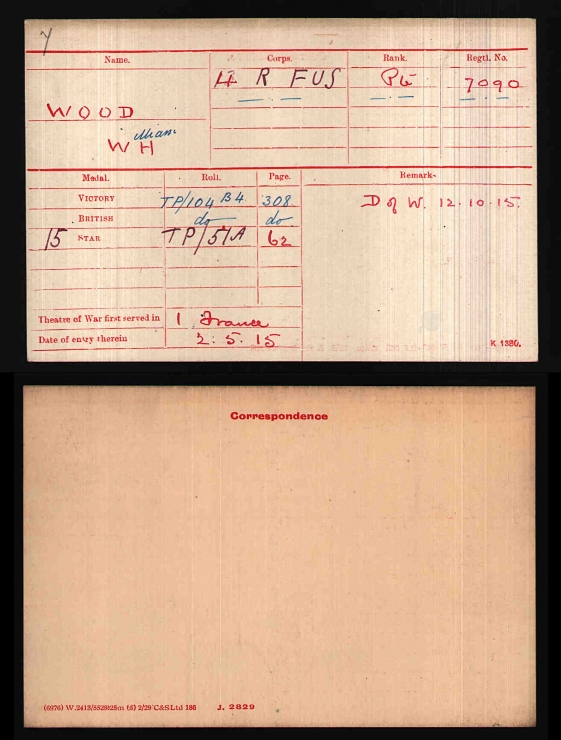 Name. Corps. Rank. Regtl. No.
4 R FUS Pte 7090
WOOD
William H
Medal. Roll. Page. Remarks
VICTORY TP/104 B4 308 D of W. 12.10.15.
BRITISH do do
15 STAR TP/51A 62
Theatre of War first served in 1 France
Date of entry therein 2.5.15
K 1380.
Correspondence
J. 2829